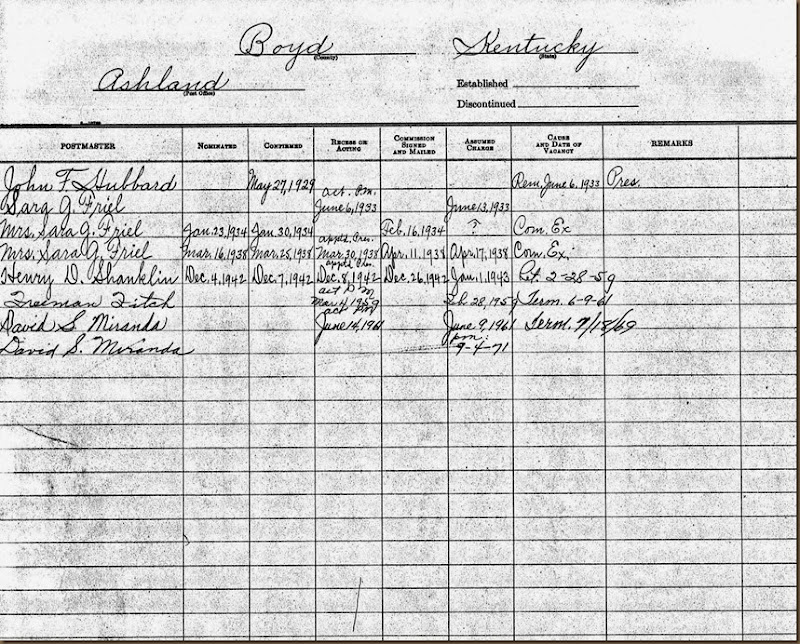 Boyd Kentucky
(County) (State)
Ashland
(Post Office)
Established
Discontinued
POSTMASTER NOMINATED CONFIRMED RECESS OR ACTING COMMISSION SIGNED AND MAILED ASSUMED CHARGE CAUSE AND DATE OF VACANCY REMARKS
John F. Hubbard May 27, 1929 Rem. June 6, 1933 Pres.
act. P.m.
Sara G. Friel June 6, 1933 June 13, 1933
Mrs. Sara G. Friel Jan. 23, 1934 Jan. 30, 1934 Feb. 16, 1934 ? Com. Ex
appt'd. Pres.
Mrs. Sara G. Friel Mar. 16, 1938 Mar. 25, 1938 Mar. 30, 1938 Apr. 11, 1938 Apr. 17, 1938 Com. Ex.
appt'd. Pres.
Henry D. Shanklin Dec. 4, 1942 Dec. 7, 1942 Dec. 8, 1942 Dec. 26, 1942 Jan. 1, 1943 Ret 2-28-59
act P M
Freeman Fitch Mar 4, 1959 Feb 28, 1959 Term. 6-9-61
act PM
David S Miranda June 14, 1961 June 9, 1961 Term. 7/18/69
pm:
David S. Miranda 9-4-71